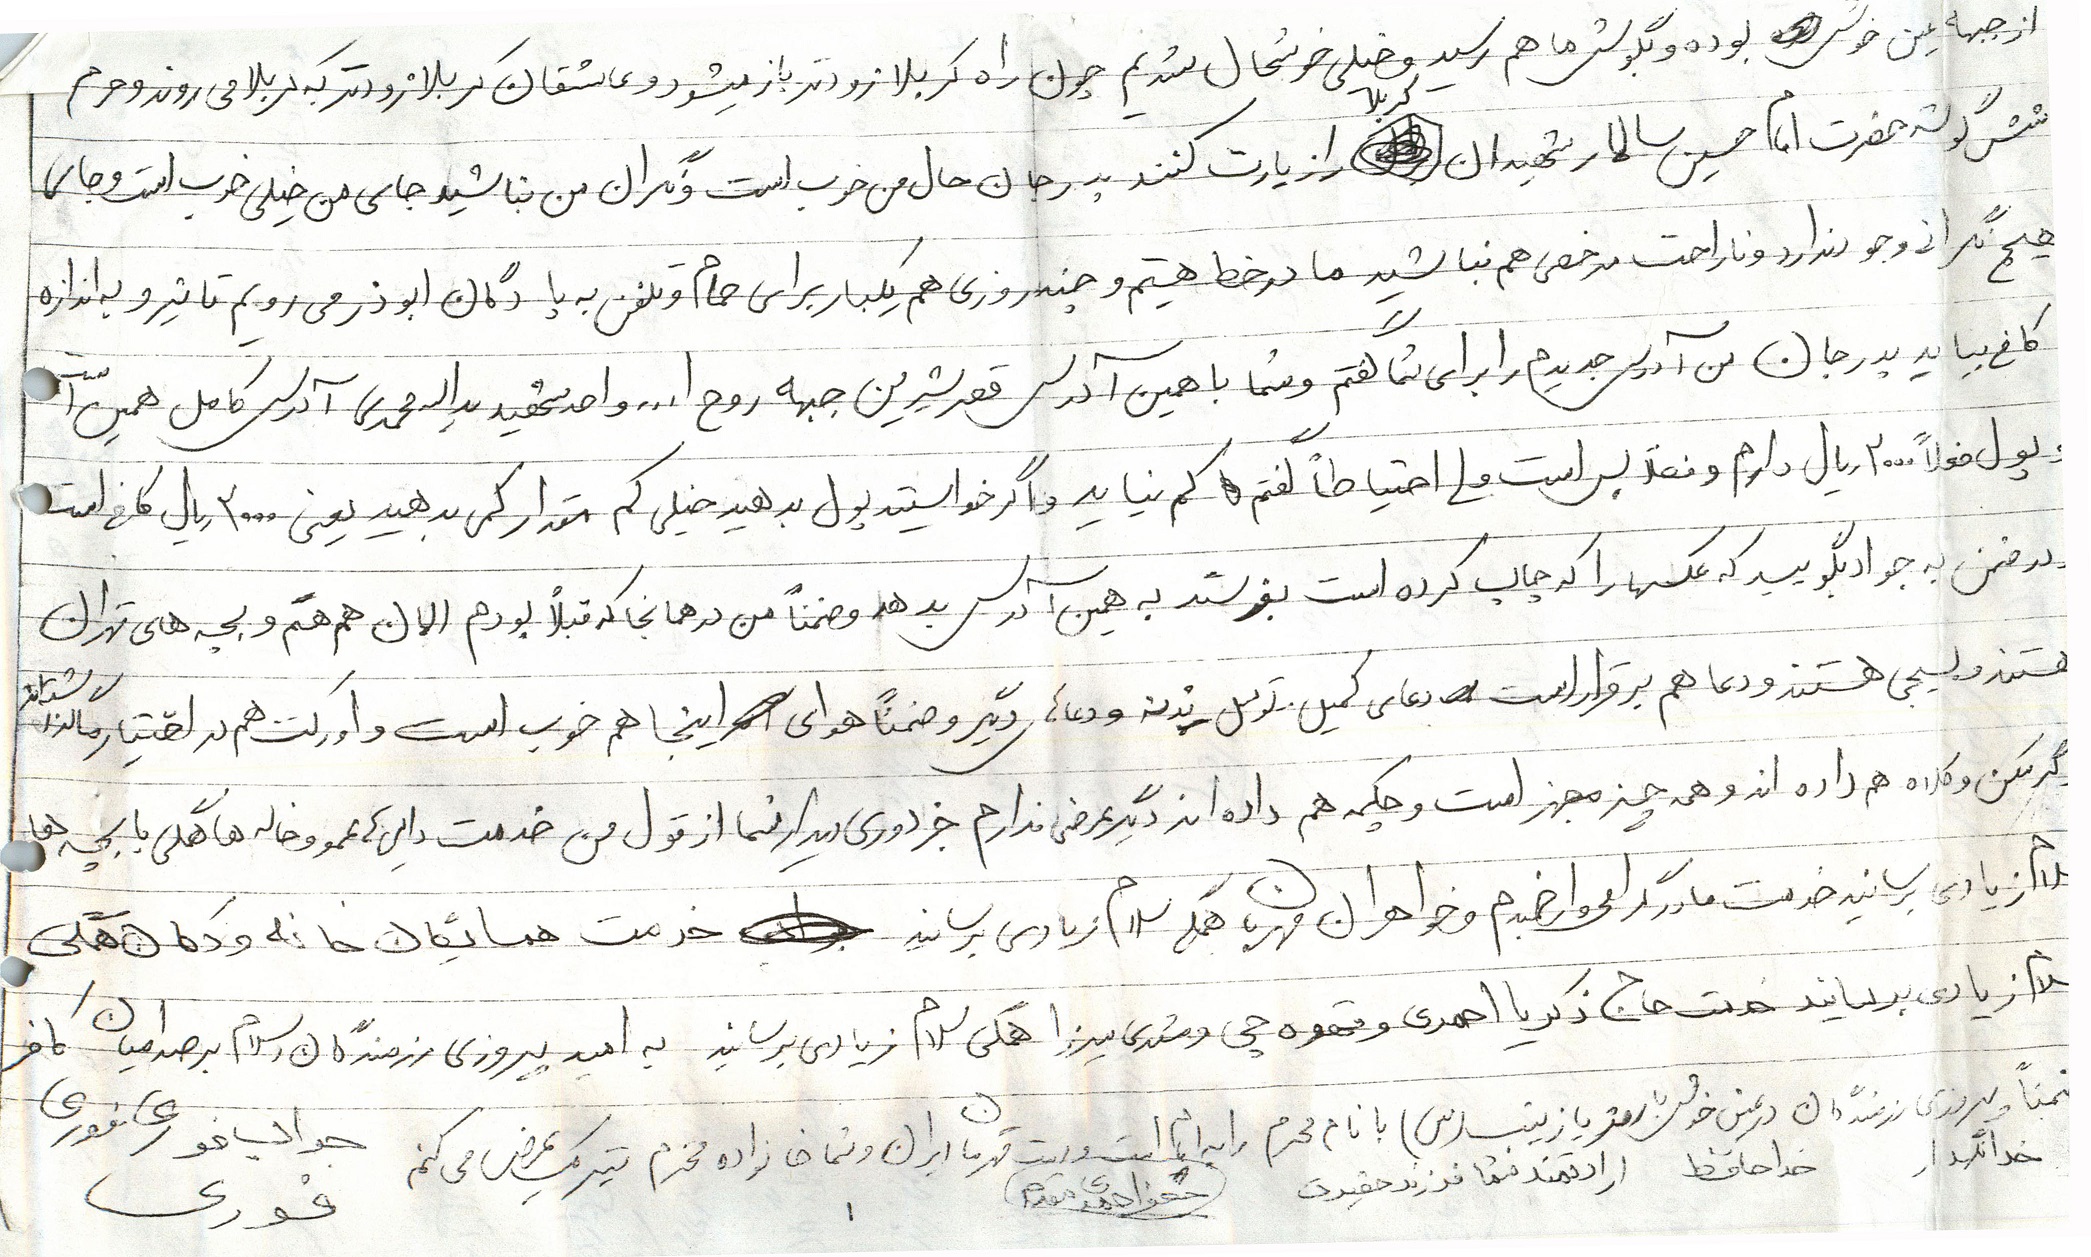 از جبهه عین خوش بوده و بگوش ما هم رسید و خیلی خوشحال شدیم چون راه کربلا زودتر باز میشود و عاشقان کربلا زودتر به کربلا می روند و حرم
شش گوشه حضرت امام حسین سالار شهیدان کربلا را زیارت کنند پدر جان حال من خوب است و نگران من نباشید جای من خیلی خوب است و جای
هیچ نگرانی وجود ندارد و ناراحت مرخصی هم نباشید ما در خط هستیم و چند روزی هم یکبار برای حمام و تلفن به پادگان ابوذر می رویم تا شیر و به اندازه
کافی بیاید پدر جان من آدرس جدیدم را برای شما گفتم و شما با همین آدرس قصر شیرین جبهه روح ا... واحد شهید یداله محمدی آدرس کامل همین است
و پول فعلاً ۲۰۰۰ ریال دارم و فعلاً بس است ولی احتیاطاً گفتم کم نیاید و اگر خواستید پول بدهید خیلی کم مقدار کمی بدهید یعنی ۲۰۰۰ ریال کافی است
در ضمن به جواد بگویید که عکسها را که چاپ کرده است بفرستد به همین آدرس بدهد و ضمناً من در همانجا که قبلاً بودم الان هم هستم و بچه های تهران
هستند و بسیجی هستند و دعا هم برقرار است دعای کمیل. توسل ندبه و دعاهای دیگر و ضمناً هوای اینجا هم خوب است و اورکت هم در اختیار ما گذاشتند
گرمکن و کلاه هم داده اند و همه چیز مجهز است و چکمه هم داده اند دیگر عرضی ندارم جز دوری دیدار شما از قول من خدمت دایی، عمو و خاله ها همگی با بچه ها
سلام زیادی برسانید خدمت مادر گرامی و ارجمندم و خواهران مهربان همگی سلام زیادی برسانید خدمت همسایگان خانه و دکان همگی
سلام زیادی برسانید خدمت حاج ذکریا احمدی و قهوه چی و مشدی میرزا همگی سلام زیادی برسانید به امید پیروزی رزمندگان اسلام بر صدامیان کافر
ضمناً پیروزی رزمندگان در عین خوش با رمز یا زینب (س) با نام محرم را به امام امت و امت قهرمان ایران و شما خانواده محترم تبریک عرض می کنم
جواب فوری فوری
فوری
خدانگهدار خداحافظ ارادتمند شما فرزند حقیرت جعفر احمدی مقدم
۱